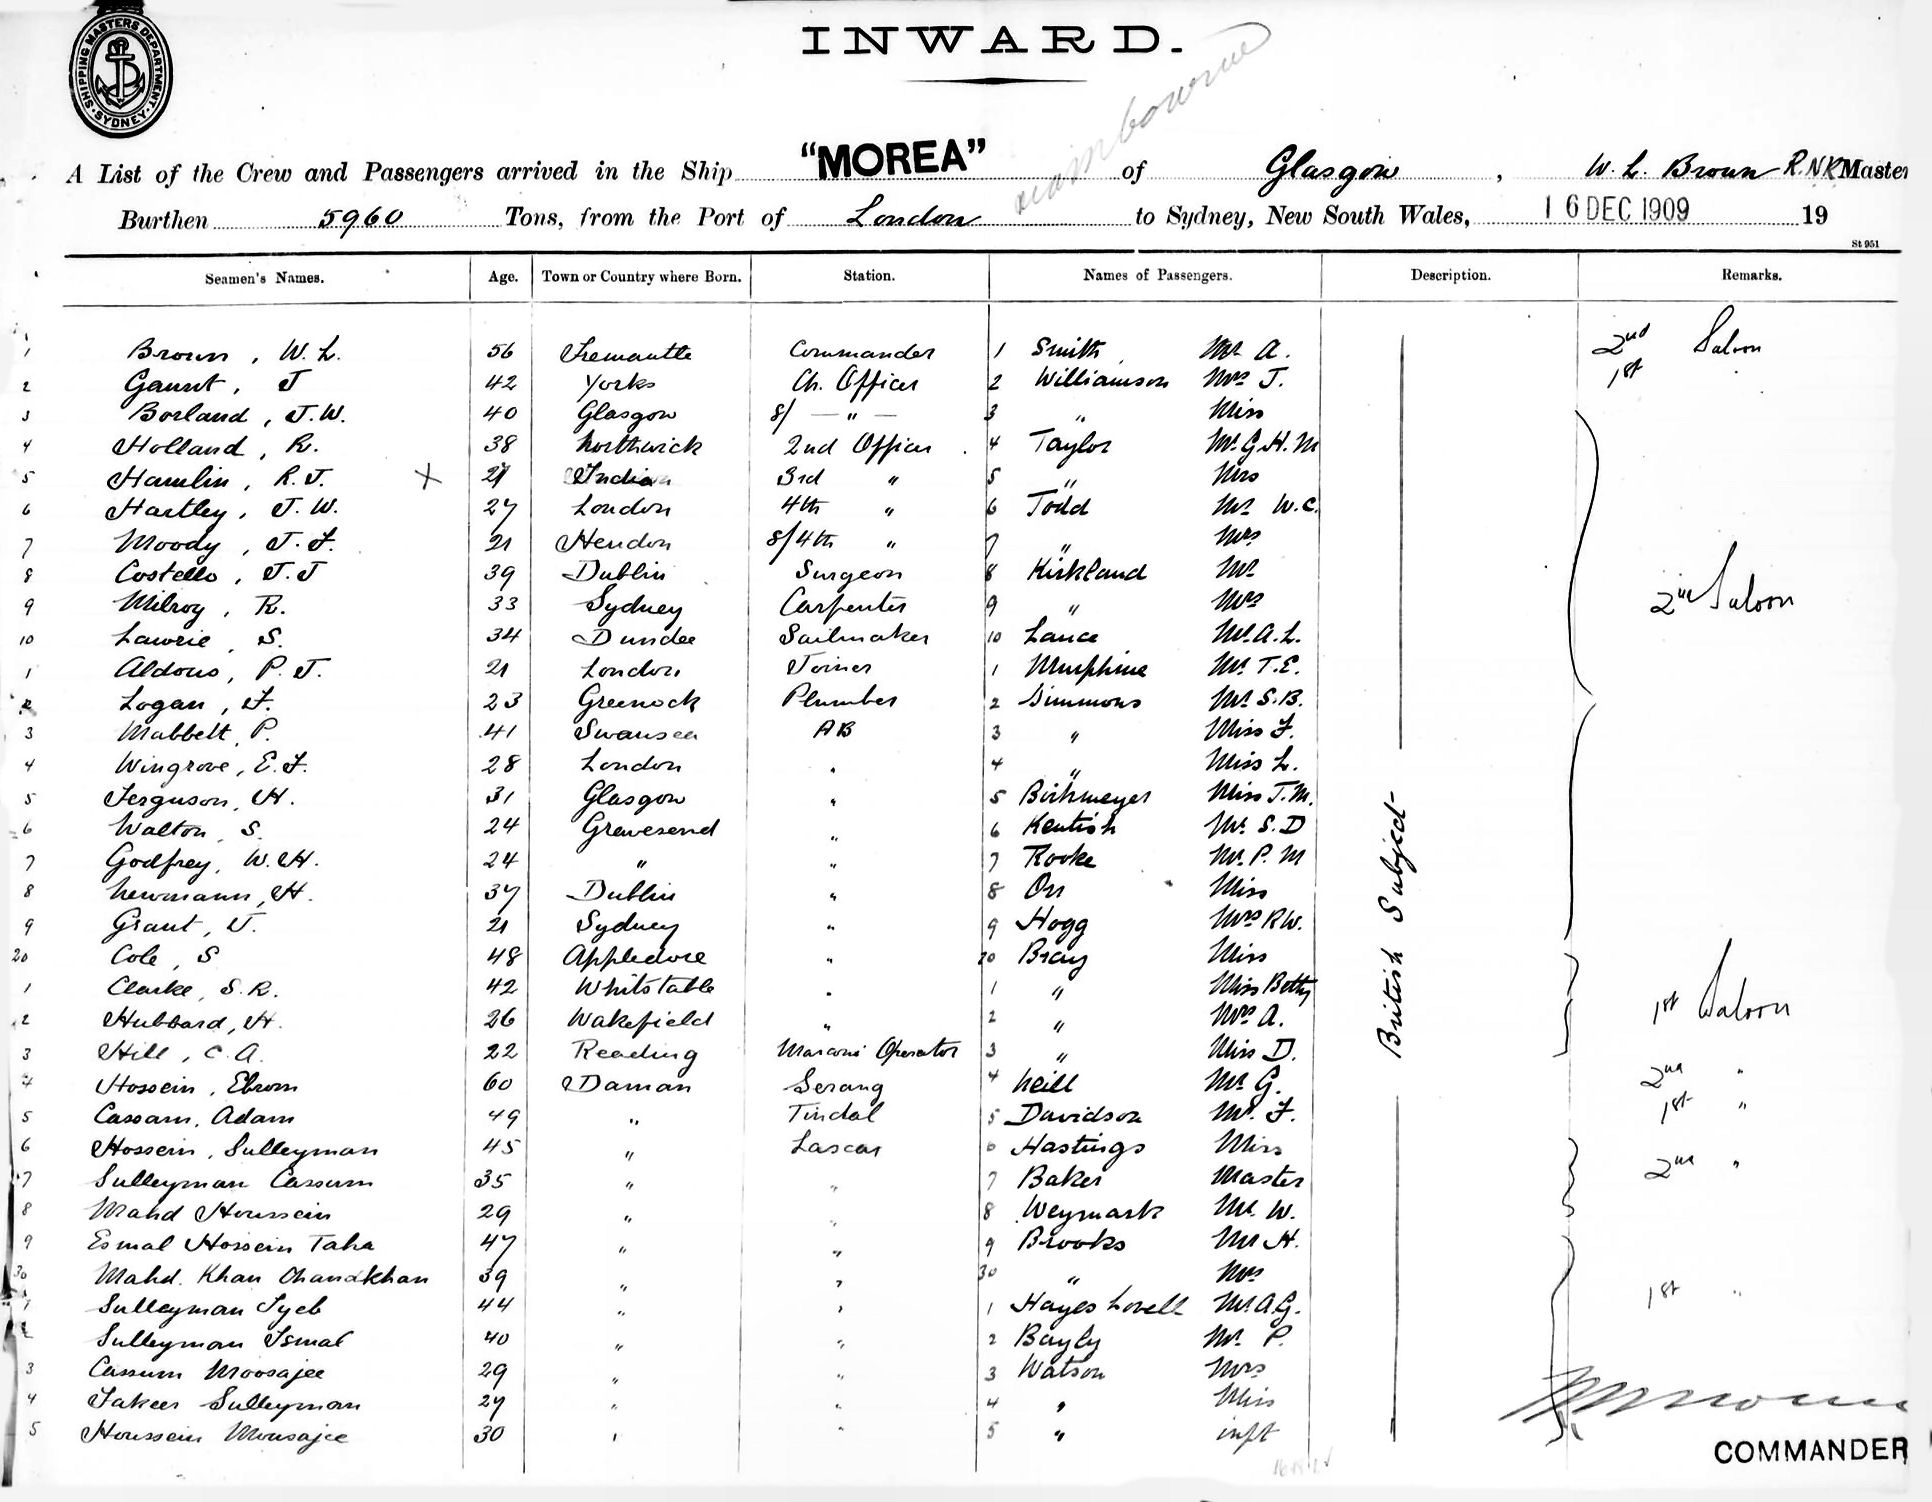 INWARD.
SHIPPING MASTERS DEPARTMENT. SYDNEY
A List of the Crew and Passengers arrived in the Ship "MOREA" of Glasgow, W. L. Brown R.N.R Master
Burthen 5960 Tons, from the Port of London to Sydney, New South Wales, 16 DEC 1909 19
St 951
Seamen's Names. Age. Town or Country where Born. Station. Names of Passengers. Description. Remarks.
1 Brown, W. L. 56 Fremantle Commander 1 Smith Mr A. 2nd Saloon
2 Gaunt, J 42 Yorks Ch. Officer 2 Williamson Mrs J. 1st
3 Borland, J. W. 40 Glasgow S/ — " — 3 " Miss
4 Holland, R. 38 Northwick 2nd Officer 4 Taylor Mr G. H. M
5 Hamlin, R. J. X 21 India 3rd " 5 " Mrs
6 Hartley, J. W. 27 London 4th " 6 Todd Mr W. C.
7 Moody, J. F. 21 Hendon S/4th " 7 " Mrs
8 Costello, J. J 39 Dublin Surgeon 8 Kirkland Mr
9 Milroy, R. 33 Sydney Carpenter 9 " Mrs 2nd Saloon
10 Lawrie, S. 34 Dundee Sailmaker 10 Lance Mr A. L.
1 Aldous, P. J. 21 London Joiner 1 Murphine Mr T. E.
2 Logan, F. 23 Greenock Plumber 2 Simmons Mr S. B.
3 Mabbett, P. 41 Swansea AB 3 " Miss F.
4 Wingrove, E. F. 28 London " 4 " Miss L.
5 Ferguson, H. 31 Glasgow " 5 Birkmeyer Miss J. M.
6 Walton, S. 24 Gravesend " 6 Kentish Mr S. D
7 Godfrey, W. H. 24 " " 7 Rooke Mr P. M
8 Newmann, H. 37 Dublin " 8 Orr Miss
9 Grant, J. 21 Sydney " 9 Hogg Mrs R W.
20 Cole, S 48 Appledore " 20 Bray Miss
1 Clarke, S. R. 42 Whitstable " 1 " Miss Betty
British Subject
2 Hubbard, H. 26 Wakefield " 2 " Mrs A. 1st Saloon
3 Hill, C. A. 22 Reading Marconi Operator 3 " Miss D.
4 Hossein, Ebrom 60 Daman Serang 4 Neill Mr G. 2nd "
5 Cassam, Adam 49 " Tindal 5 Davidson Mr F. 1st "
6 Hossein, Sulleyman 45 " Lascar 6 Hastings Miss
7 Sulleyman Cassum 35 " " 7 Baker Master 2nd "
8 Mahd Houssein 29 " " 8 Weymark Mr W.
9 Esmal Hossein Taha 47 " " 9 Brooks Mr H.
30 Mahd. Khan Chandkhan 39 " " 30 " Mrs
1 Sulleyman Syeb 44 " " 1 Hayes Lovell Mr A. G. 1st "
2 Sulleyman Ismal 40 " " 2 Bayly Mr P.
3 Cassum Moosajee 29 " " 3 Watson Mrs
4 Fakeer Sulleyman 27 " " 4 " Miss
5 Houssein Mousajee 30 " " 5 " inft
COMMANDER